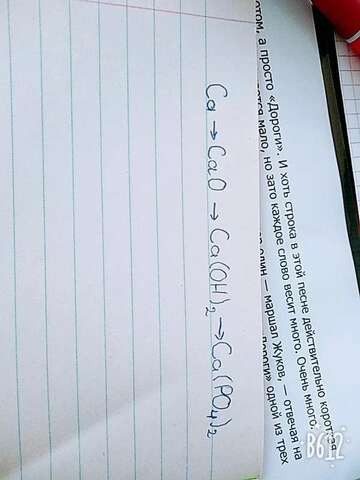 отом, а просто «Дороги». И хоть строка в этой песне действительно коротка
мало, но зато каждое слово весит много. Очень много.
один — маршал Жуков, — отвечая на
Дороги» одной из трех
Ca → CaO → Ca(OH)₂ → Ca(PO₄)₂
B612